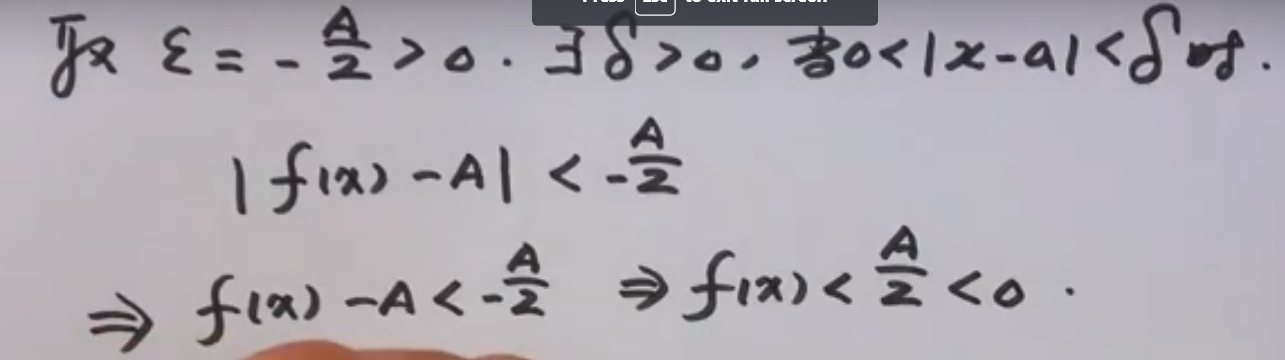 Press Esc to exit full screen
取 ε = - A/2 > 0. ∃ δ > 0, 当 0 < |x - a| < δ 时.
| f(x) - A | < - A/2
⇒ f(x) - A < - A/2 ⇒ f(x) < A/2 < 0.